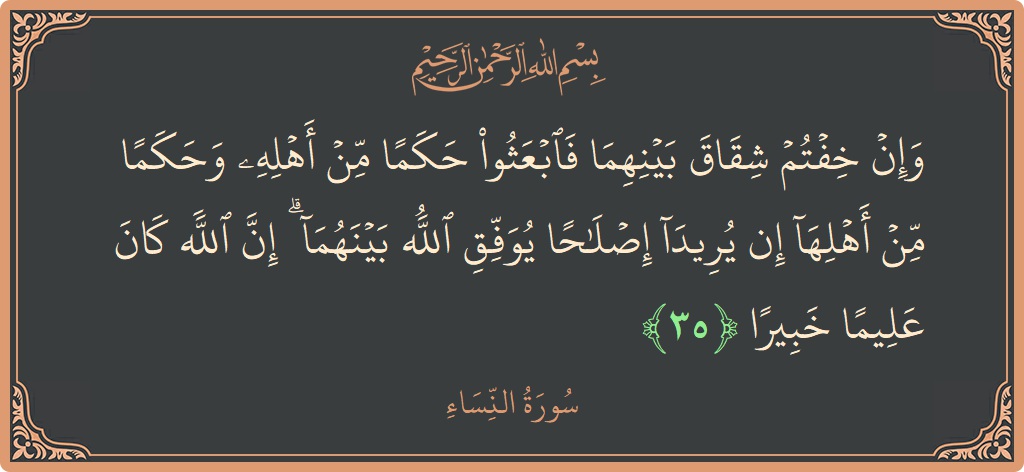 بِسْمِ اللهِ الرَّحْمٰنِ الرَّحِيْمِ
وَإِنۡ خِفۡتُمۡ شِقَاقَ بَيۡنِهِمَا فَٱبۡعَثُواْ حَكَمًا مِّنۡ أَهۡلِهِۦ وَحَكَمًا
مِّنۡ أَهۡلِهَآ إِن يُرِيدَآ إِصۡلَٰحًا يُوَفِّقِ ٱللَّهُ بَيۡنَهُمَآۗ إِنَّ ٱللَّهَ كَانَ
عَلِيمًا خَبِيرًا ﴿٣٥﴾
سُورَةُ النِّسَاءِ